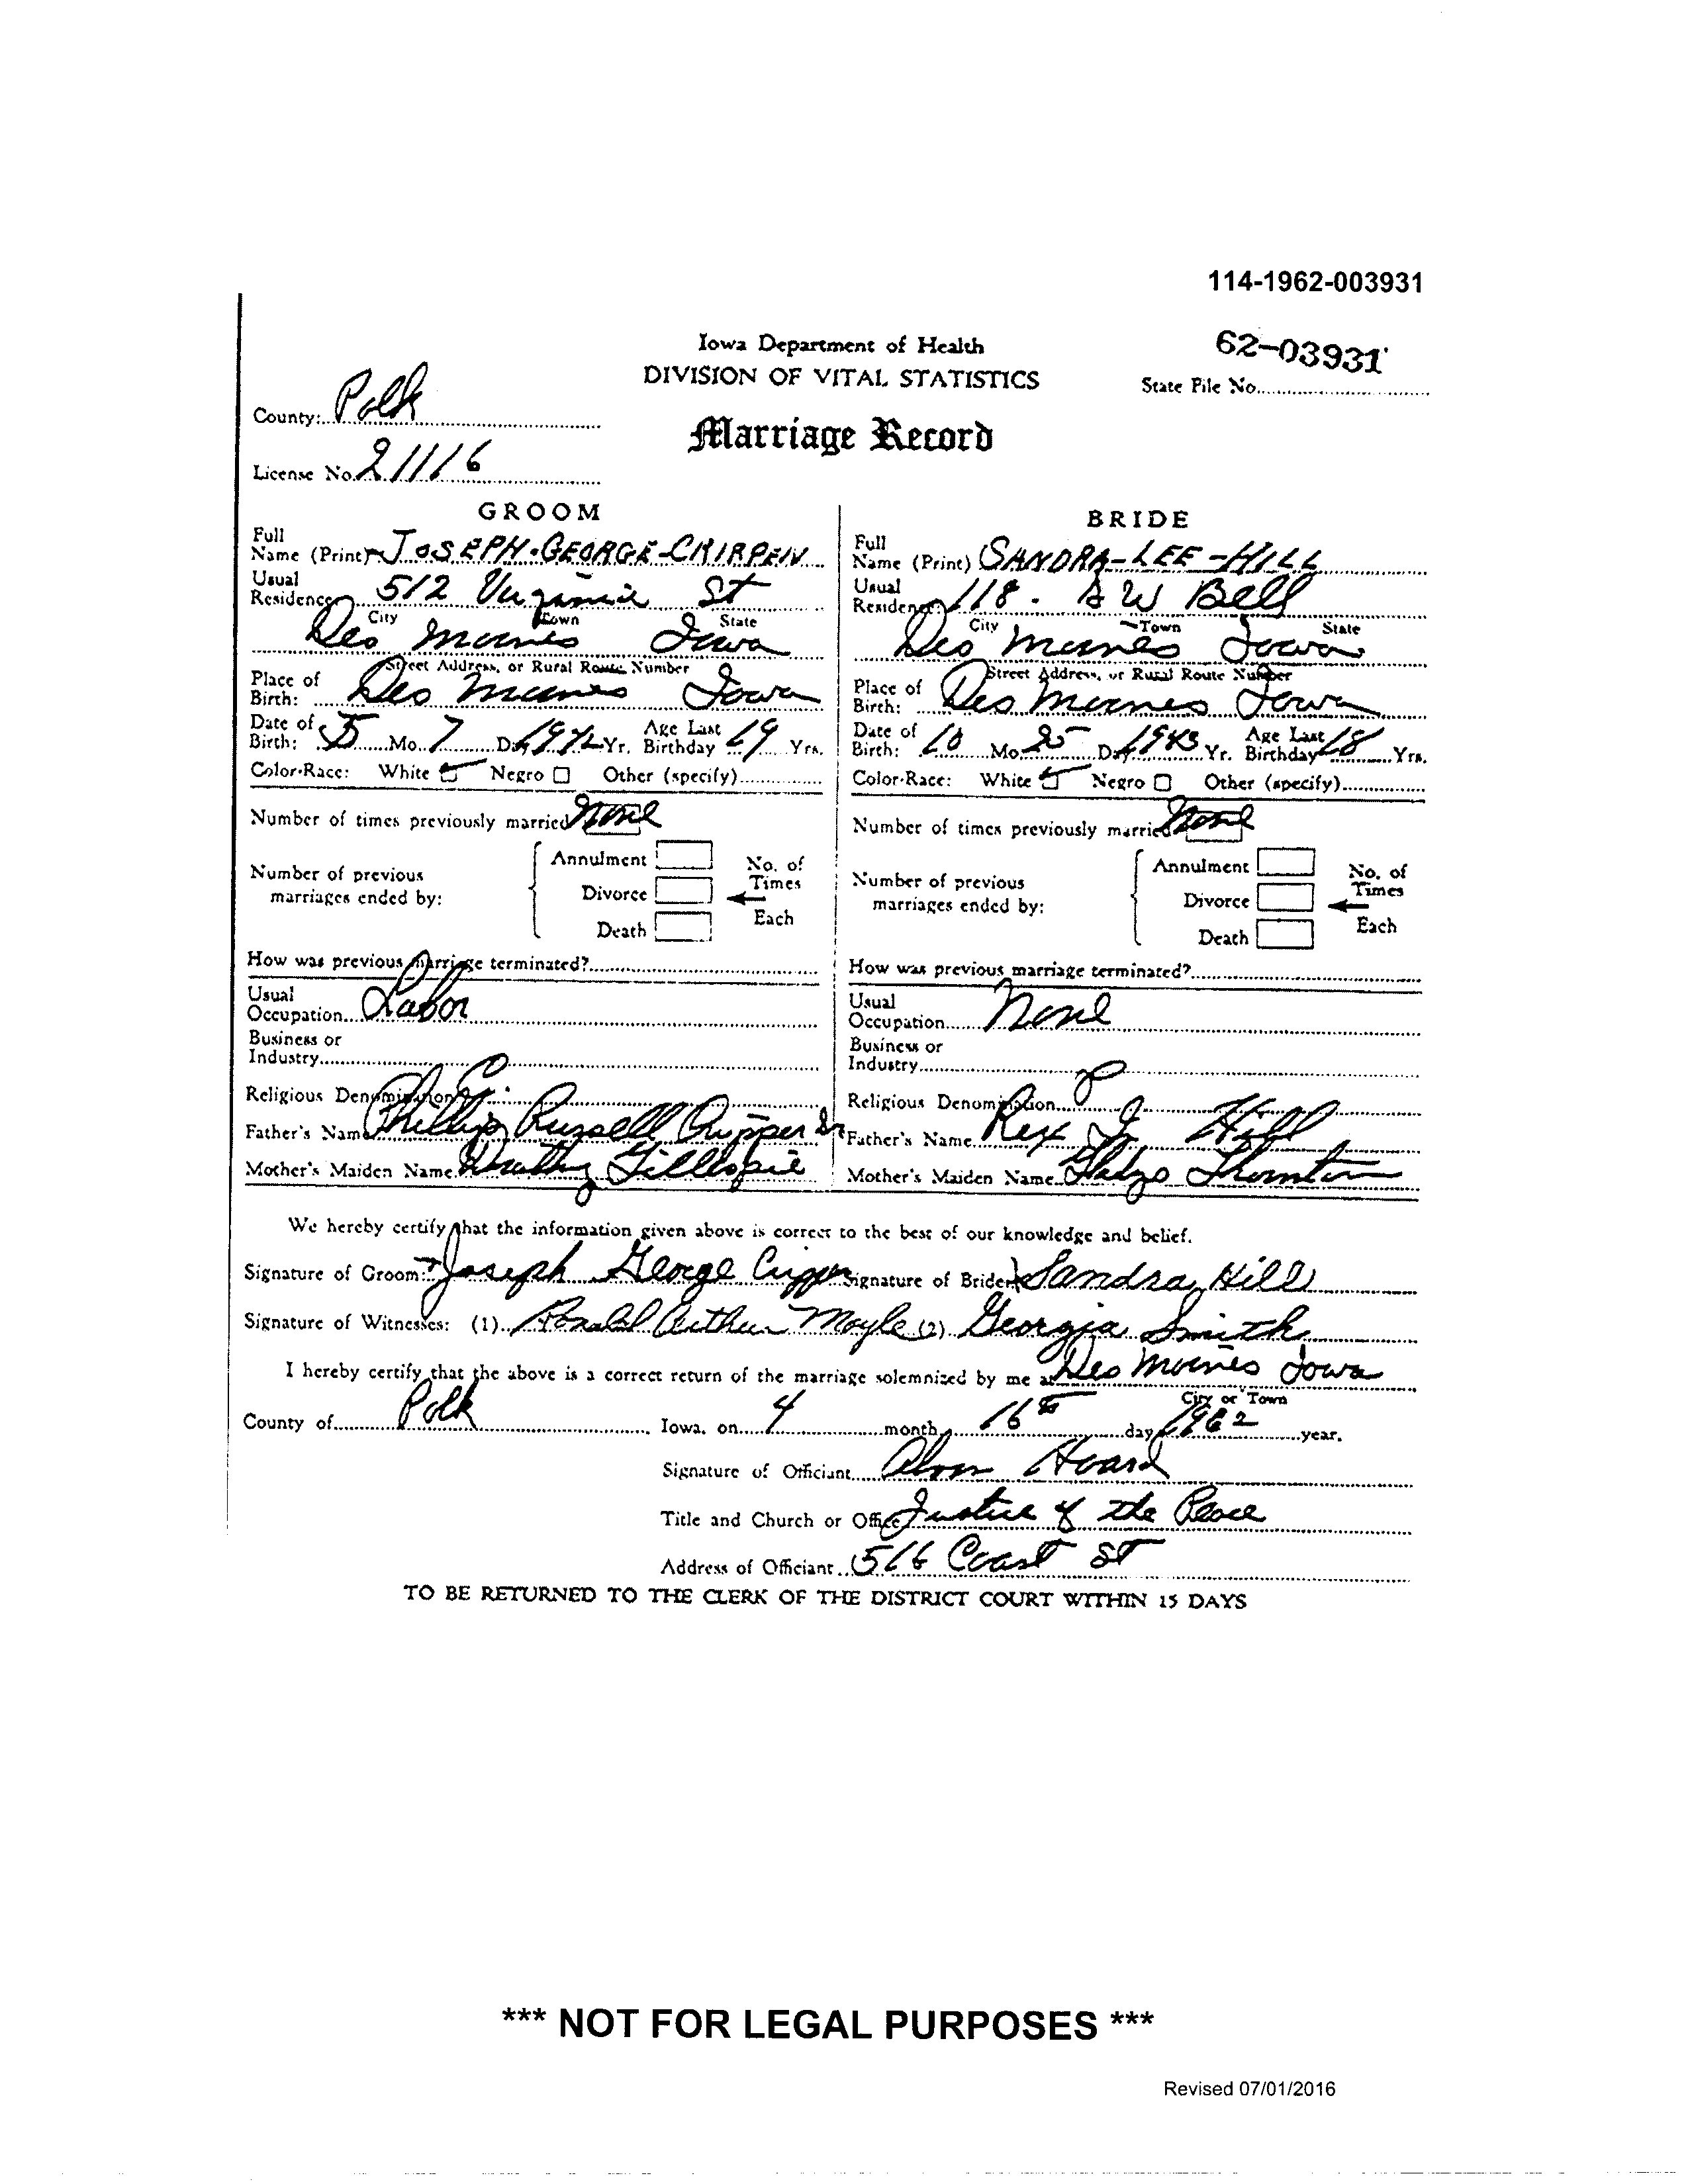 114-1962-003931
Iowa Department of Health
62-03931
DIVISION OF VITAL STATISTICS
State File No.
County: Polk
Marriage Record
License No. 21116
GROOM
Full
Name (Print) JOSEPH-GEORGE-CRIPPEN
Usual
Residence 512 Virginia St
City Town State
Des Moines Iowa
Street Address, or Rural Route Number
Place of
Birth: Des Moines Iowa
Date of
Birth: 5 Mo. 7 Day Yr. Age Last Birthday 19 Yrs.
Color-Race: White Negro Other (specify)
Number of times previously married None
Number of previous
marriages ended by:
Annulment
Divorce
Death
No. of
Times
Each
How was previous marriage terminated?
Usual
Occupation Labor
Business or
Industry
Religious Denomination P
Father's Name Phillip Russell Crippen Sr
Mother's Maiden Name Dorothy Gillespie
BRIDE
Full
Name (Print) SANDRA-LEE-HILL
Usual
Residence: 118. S W Bell
City Town State
Des Moines Iowa
Street Address, or Rural Route Number
Place of
Birth: Des Moines Iowa
Date of
Birth: 10 Mo. 25 Day 1943 Yr. Age Last Birthday 18 Yrs.
Color-Race: White Negro Other (specify)
Number of times previously married None
Number of previous
marriages ended by:
Annulment
Divorce
Death
No. of
Times
Each
How was previous marriage terminated?
Usual
Occupation None
Business or
Industry
Religious Denomination P
Father's Name Rex J. Hill
Mother's Maiden Name Gladys Thornton
We hereby certify that the information given above is correct to the best of our knowledge and belief.
Signature of Groom: Joseph George Crippen Signature of Bride: Sandra Hill
Signature of Witnesses: (1) Ronald Arthur Moyle (2) Georgia Smith
I hereby certify that the above is a correct return of the marriage solemnized by me at Des Moines Iowa
City or Town
County of Polk Iowa, on 4 month 16th day 1962 year.
Signature of Officiant Hoard
Title and Church or Office Justice of the Peace
Address of Officiant 516 St
TO BE RETURNED TO THE CLERK OF THE DISTRICT COURT WITHIN 15 DAYS
*** NOT FOR LEGAL PURPOSES ***
Revised 07/01/2016